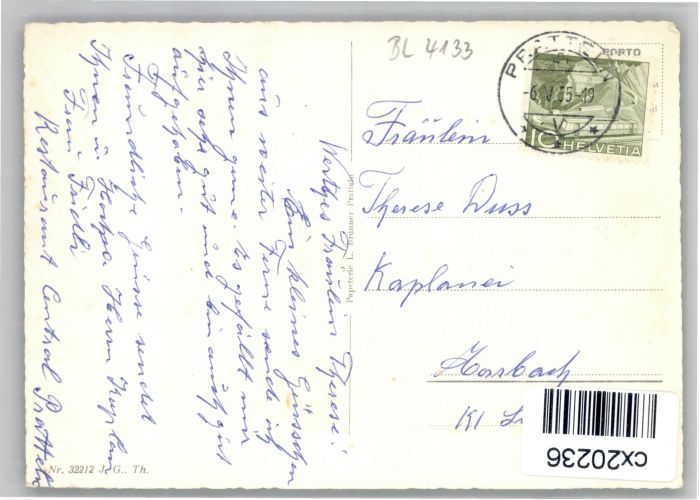 BL 4133
PORTO
PRATTELN
-6.V.55-19
10 HELVETIA
Wertges Fräulein Therese!
Ein kleines Grüsschen
aus weiter Ferne sende ich
Ihnen gerne. Es gefällt mir
hier sehr gut und bin auch gut
aufgehoben.
Freundliche Grüsse sendet
Ihnen u. Hochw. Herrn Kaplan
Frau Fridli
Restaurant Central Pratteln
Papeterie L. Brunner Pratteln
Fräulein
Therese Duss
Kaplanei
Marbach
Kt
Nr. 32212 J. G., Th.
cx20236